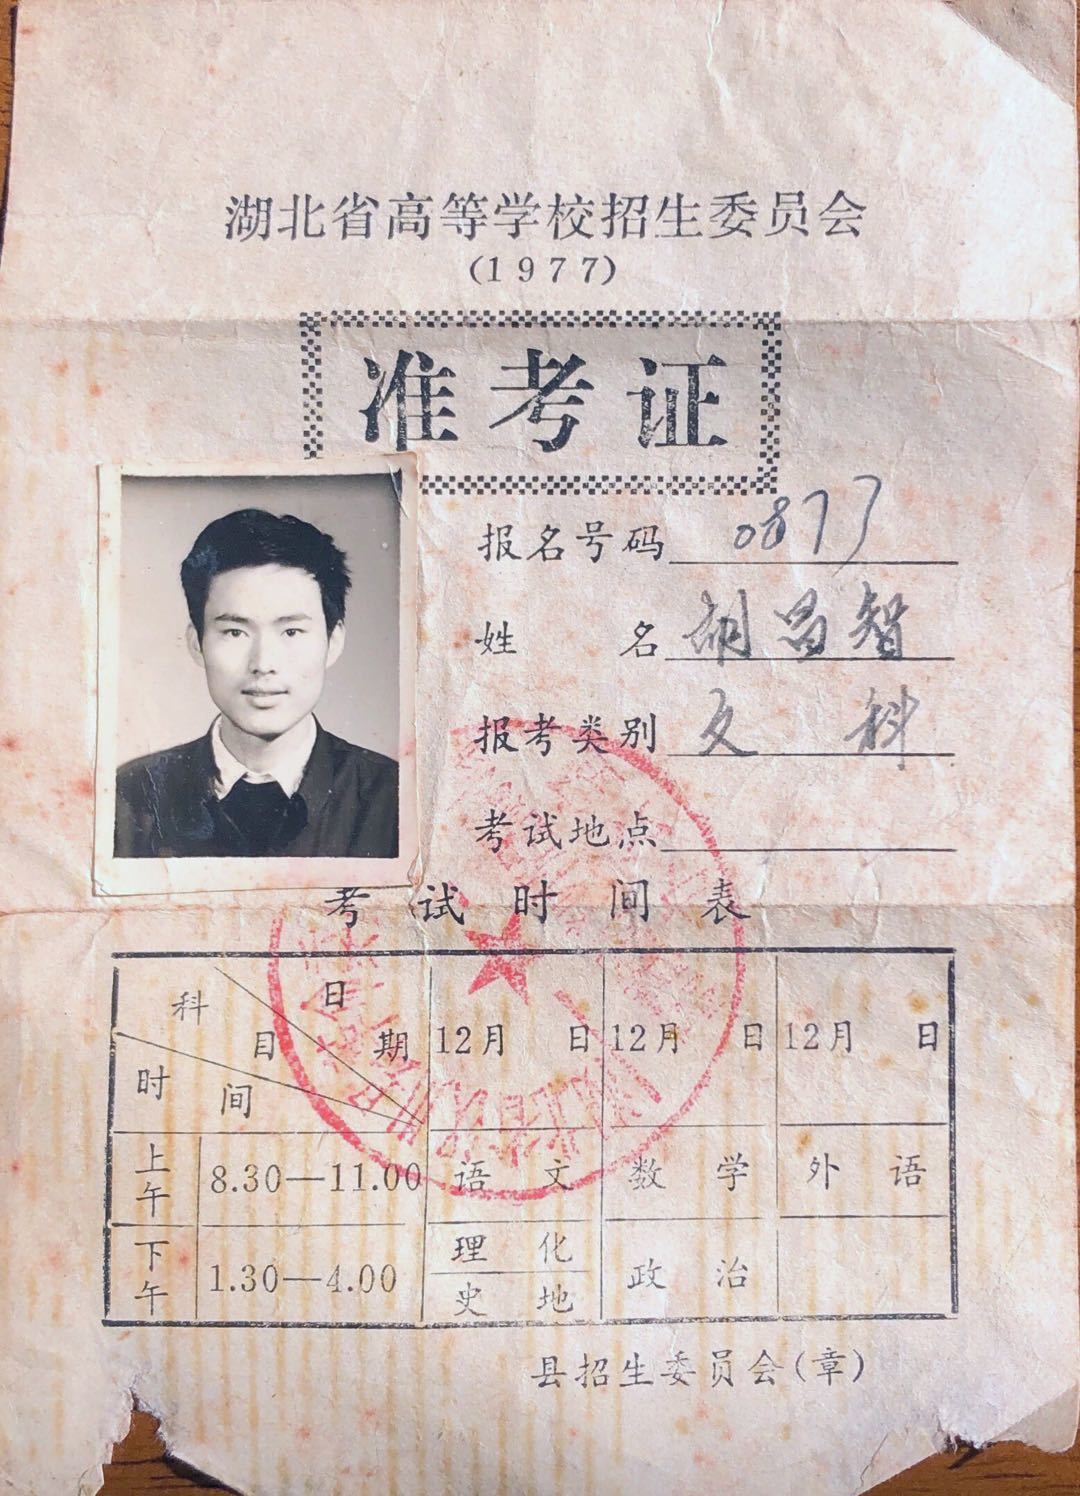 湖北省高等学校招生委员会
(1977)
准考证
报名号码 0877
姓名 胡昌智
报考类别 文科
考试地点
考试时间表
科目 日期 时间 12月 日 12月 日 12月 日
上午 8.30—11.00 语文 数学 外语
下午 1.30—4.00 理化 史地 政治
县招生委员会(章)